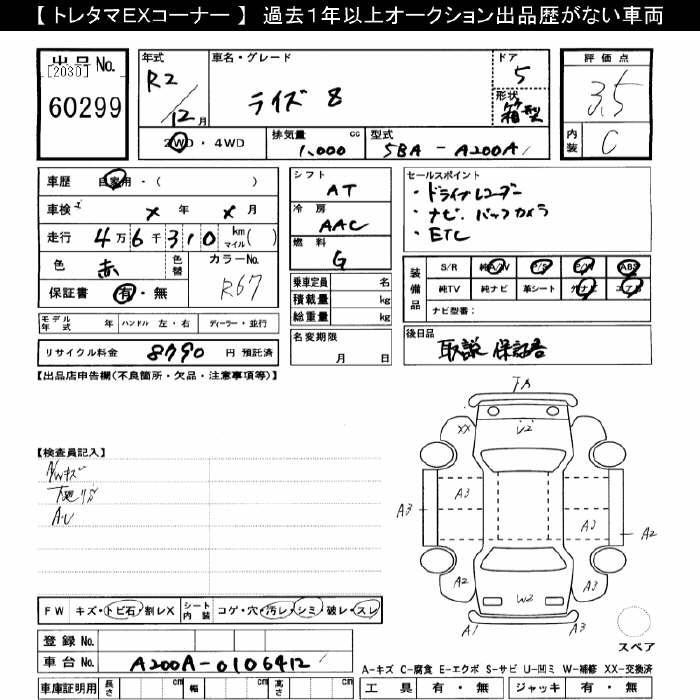 【 トレタマEXコーナー 】 過去１年以上オークション出品歴がない車両
出品 No.
[2030]
60299
年式
R2
12 月
車名・グレード
ライズ 8
ドア
5
形状
箱型
評価点
3.5
内装
C
2WD・4WD
排気量 cc
1,000
型式
5BA - A200A
車歴 自家用・( )
車検 × 年 × 月
走行 4 万 6 千 3 1 0 km マイル ( )
色 赤 色替
カラーNo. R67
保証書 有・無
モデル年式 年 ハンドル 左・右 ディーラー・並行
リサイクル料金 8790 円 預託済
シフト
AT
冷房
AAC
燃料
G
乗車定員 名
積載量 kg
総重量 kg
名変期限
月 日
セールスポイント
・ドライブレコーダー
・ナビ. バックカメラ
・ETC
装備品
S/R 純A/W P/S P/W ABS
純TV 純ナビ 革シート 外ナビ エアB
ナビ型番:
後日品
取説 保証書
【出品店申告欄(不良箇所・欠品・注意事項等)】
【検査員記入】
A/Wキズ
A・U
XX
U2
A3
A3
A3
A2
A2
A3
W2
A1
A3
スペア
FW キズ・トビ石・割レX
シート内装 コゲ・穴・汚レ・シミ・破レ・スレ
登録 No.
車台 No. A200A-0106412
車庫証明用 長さ cm 幅 cm 高さ cm
A-キズ C-腐食 E-エクボ S-サビ U-凹ミ W-補修 XX-交換済
工具 有・無 ジャッキ 有・無